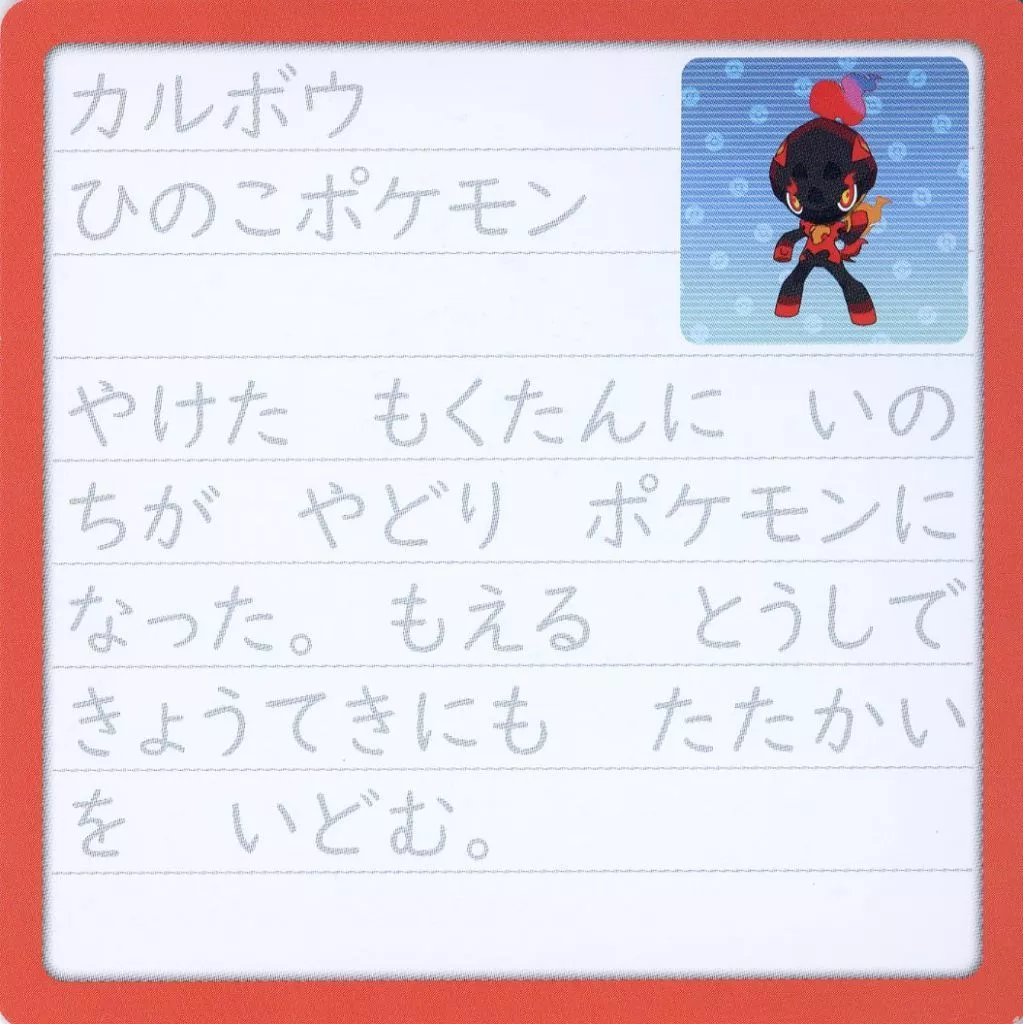 カルボウ
ひのこポケモン
やけた　もくたんに　いの
ちが　やどり　ポケモンに
なった。　もえる　とうしで
きょうてきにも　たたかい
を　いどむ。